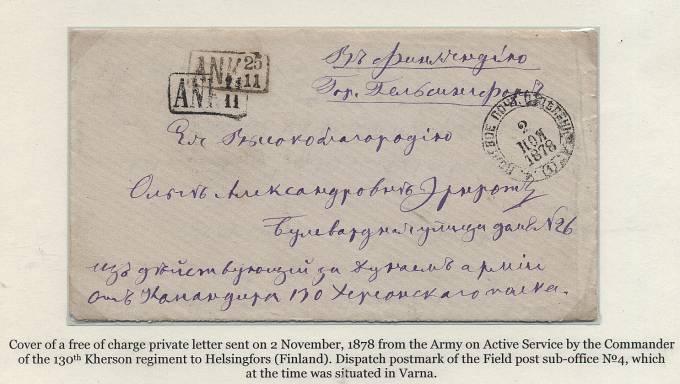 Въ Финляндію
ANK 25 11
Гор. Гельсингфорсъ
ANK 11
ПОЛЕВОЕ ПОЧТ. ОТДѢЛЕНІЕ
2 НОЯ 1878
Ея Высокоблагородію
Ольгѣ Александровнѣ
Бульварная улица домъ №26
изъ дѣйствующей за Дунаемъ арміи
отъ Командира 130 Херсонскаго полка.
Cover of a free of charge private letter sent on 2 November, 1878 from the Army on Active Service by the Commander
of the 130th Kherson regiment to Helsingfors (Finland). Dispatch postmark of the Field post sub-office №4, which
at the time was situated in Varna.